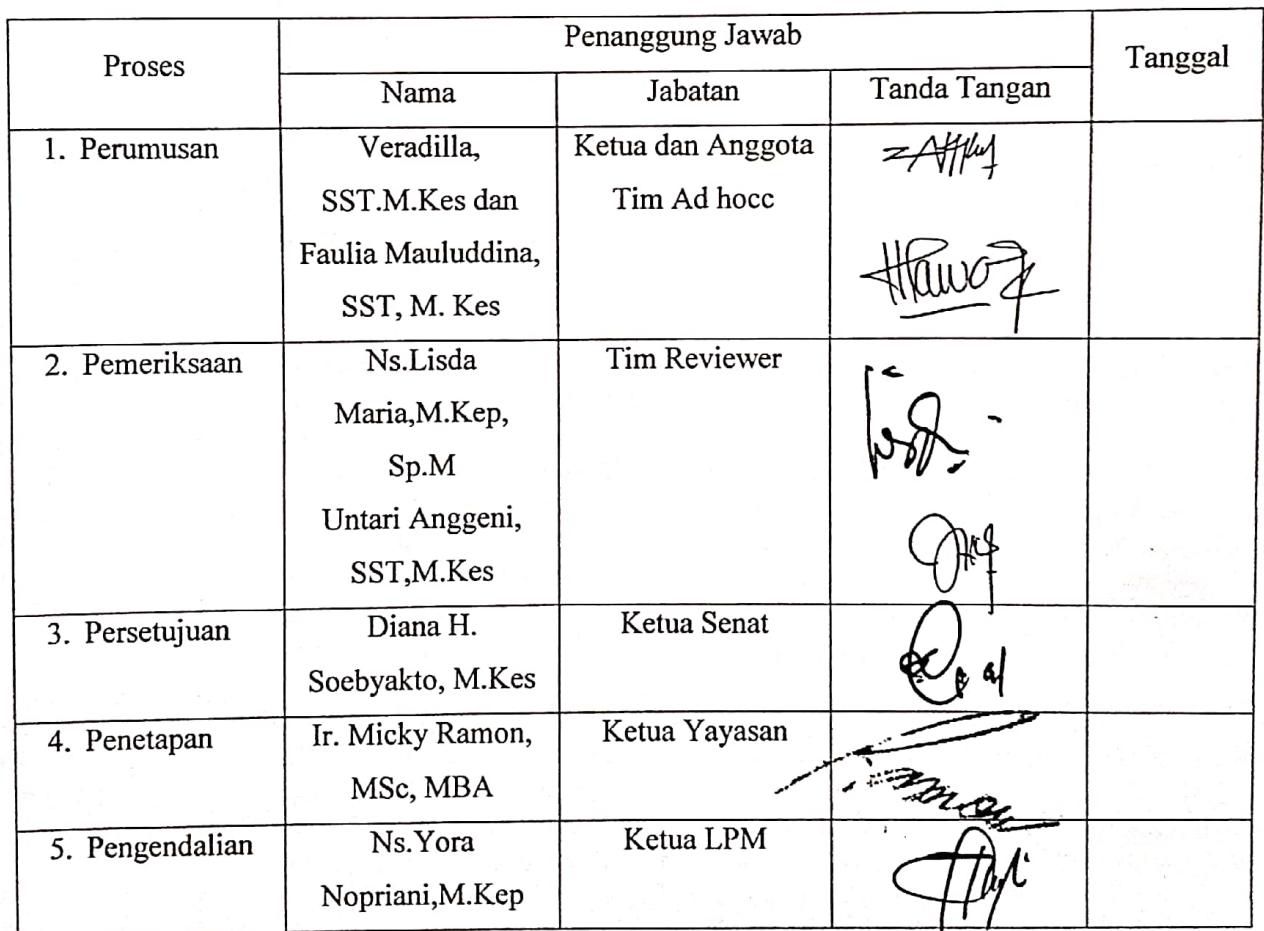 Proses
Penanggung Jawab
Tanggal
Nama
Jabatan
Tanda Tangan
1. Perumusan
Veradilla,
SST.M.Kes dan
Faulia Mauluddina,
SST, M. Kes
Ketua dan Anggota
Tim Ad hocc
2. Pemeriksaan
Ns.Lisda
Maria,M.Kep,
Sp.M
Untari Anggeni,
SST,M.Kes
Tim Reviewer
3. Persetujuan
Diana H.
Soebyakto, M.Kes
Ketua Senat
4. Penetapan
Ir. Micky Ramon,
MSc, MBA
Ketua Yayasan
5. Pengendalian
Ns.Yora
Nopriani,M.Kep
Ketua LPM